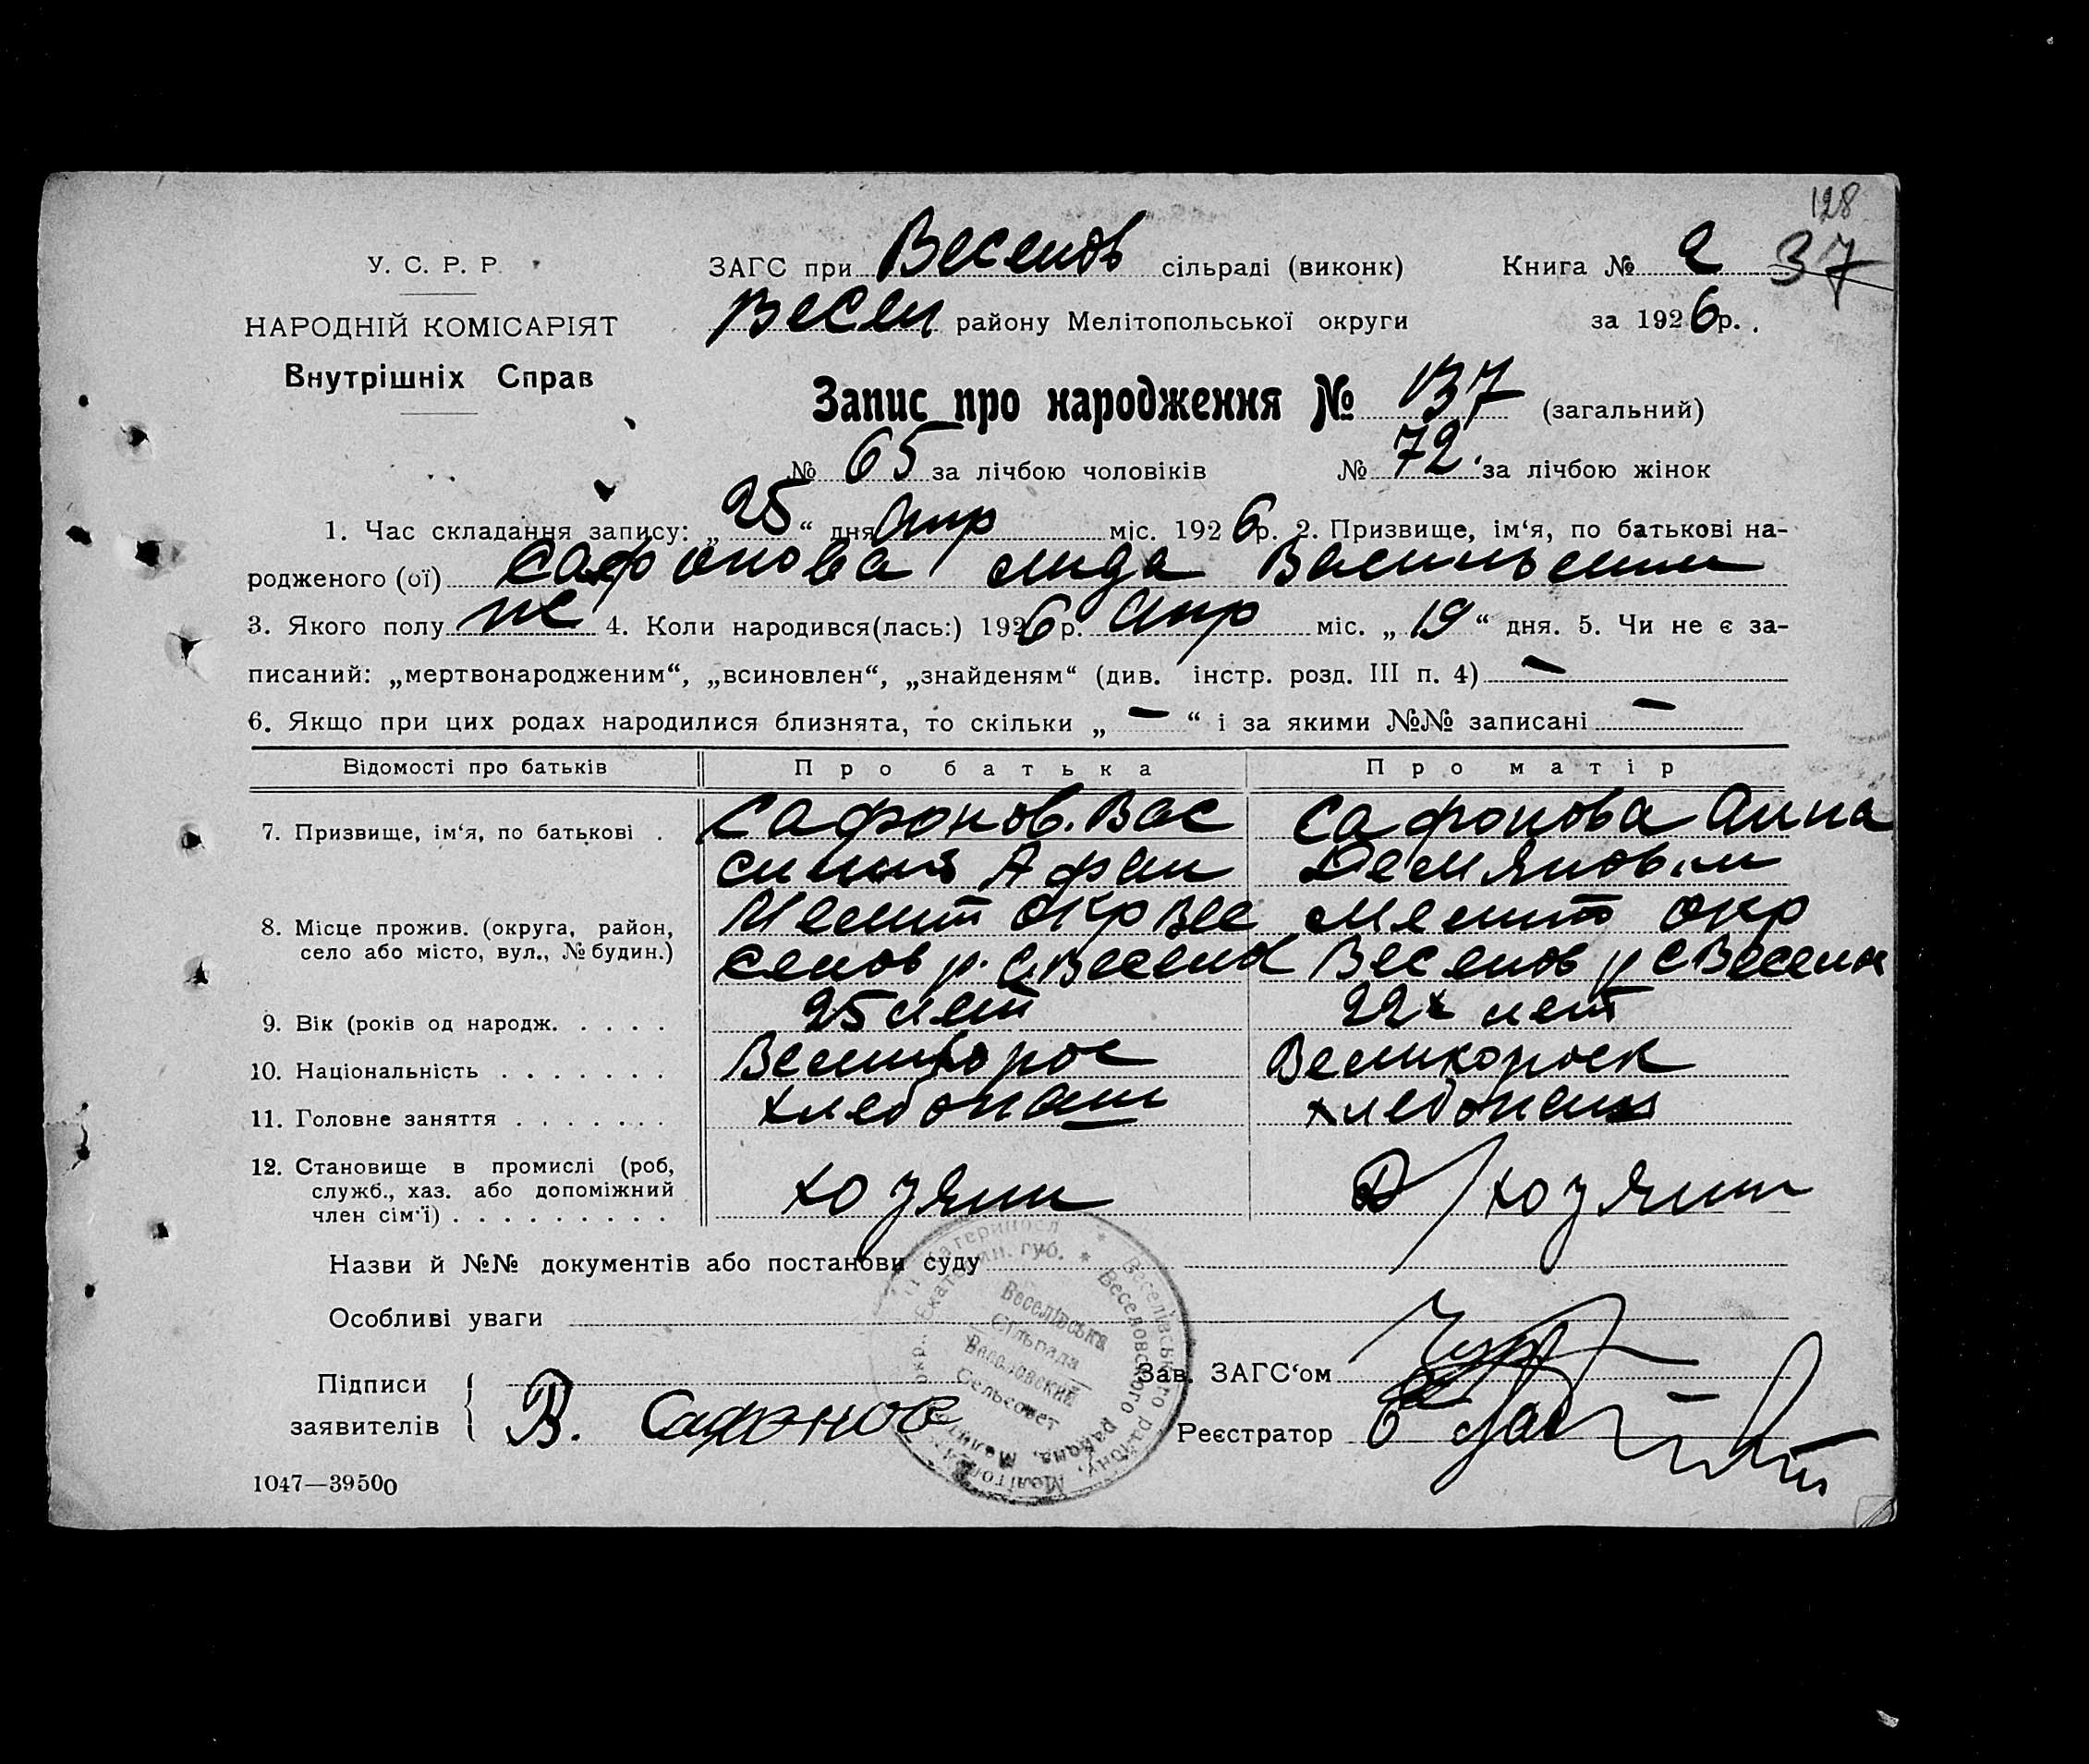 128
У. С. Р. Р. ЗАГС при Веселов сільраді (виконк) Книга № 2 37
НАРОДНІЙ КОМІСАРІЯТ Весел району Мелітопольської округи за 1926р.
Внутрішніх Справ
Запис про народження № 137 (загальний)
№ 65 за лічбою чоловіків № 72 за лічбою жінок
1. Час складання запису: „25“ дня Апр міс. 1926р. 2. Призвище, ім‘я, по батькові на-
родженого (ої) Сафонова Лида Васильевна
3. Якого полу ж 4. Коли народився(лась:) 1926р. Апр міс. „19“ дня. 5. Чи не є за-
писаний: „мертвонародженим“, „всиновлен“, „знайденям“ (див. інстр. розд. III п. 4) —
6. Якщо при цих родах народилися близнята, то скільки „—“ і за якими №№ записані —
Відомості про батьків Про батька Про матір
7. Призвище, ім‘я, по батькові . Сафонов Вас Сафонова Анна
Афан Демянов
8. Місце прожив. (округа, район, Мелит окр Ве Мелит окр
село або місто, вул., № будин.) селов р. с. Весело Веселов р с Весело
9. Вік (років од народж. . . . . 25 лет 22х лет
10. Національність . . . . . . . Великорос Великороск
11. Головне заняття . . . . . . . хлебопаш хлебопаш
12. Становище в промислі (роб,
служб., хаз. або допоміжний хозяин Д/хозяин
член сім‘ї) . . . . . . . . .
Назви й №№ документів або постанови суду
Особливі уваги
Підписи Зав. ЗАГС‘ом
заявителів В. Сафонов Реєстратор
Веселівська
Сільрада
Веселовский
Сельсовет
1047—39500